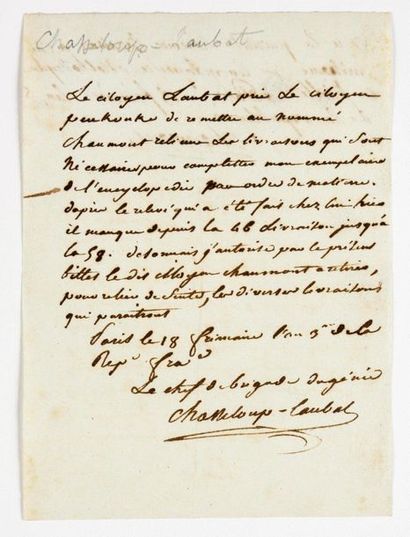 Chasseloup-Laubat
Le citoyen Laubat prie Le citoyen
penkouke de remettre au nommé
chaumont relieur Les livraisons qui sont
Nécessaires pour completter mon exemplaire
de l'encyclopedie par ordre de matiere.
dapres le relevé qui a été fait chez lui
il manque depuis la 46 livraison jusqu'à
la 58. desormais j'autorise par le présent
billet le dit citoyen chaumont a retirer,
pour relier de suite, les diverses livraisons
qui paraitront
Paris le 18 frimaire l'an 3e de la
Repe frae
Le chef de brigade du génie
Chasseloup-Laubat